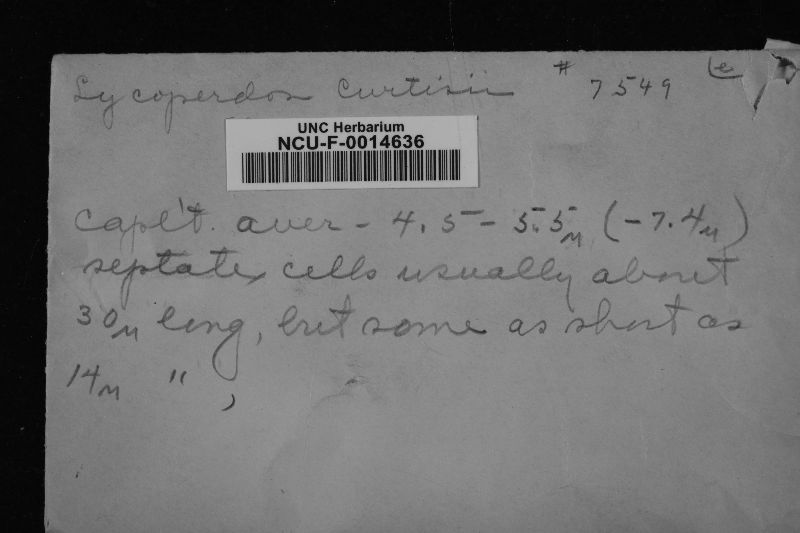 Lycoperdon Curtisii # 7549 e
UNC Herbarium
NCU-F-0014636
Capl't. aver - 4.5 - 5.5µ (-7.4µ)
septate, cells usually about
30µ long, but some as short as
14µ " ,